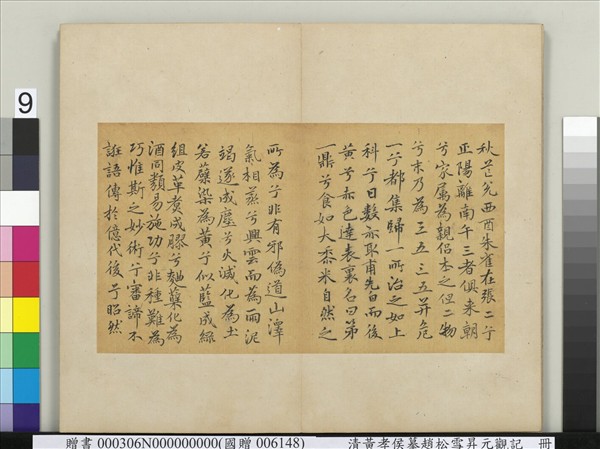 秋芒兌西酉朱雀在張二兮
正陽離南午三者俱来朝
兮家属為親侶本之但二物
兮末乃為三五三五并危
一兮都集歸一所治之如上
科兮日數亦取甫先白而後
黄兮赤色達表裏名曰第
一鼎兮食如大黍米自然之
所為兮非有邪偽道山澤
氣相蒸兮興雲而為雨泥
竭遂成塵兮火滅化為土
若蘗染為黄兮似藍成綠
組皮革煮成膠兮麹蘗化為
酒同類易施功兮非種難為
巧惟斯之妙術兮審諦不
誑語傳於億代後兮昭然
9
贈書 000306N000000000(國贈 006148)
清黃孝侯摹趙松雪昇元觀記 冊